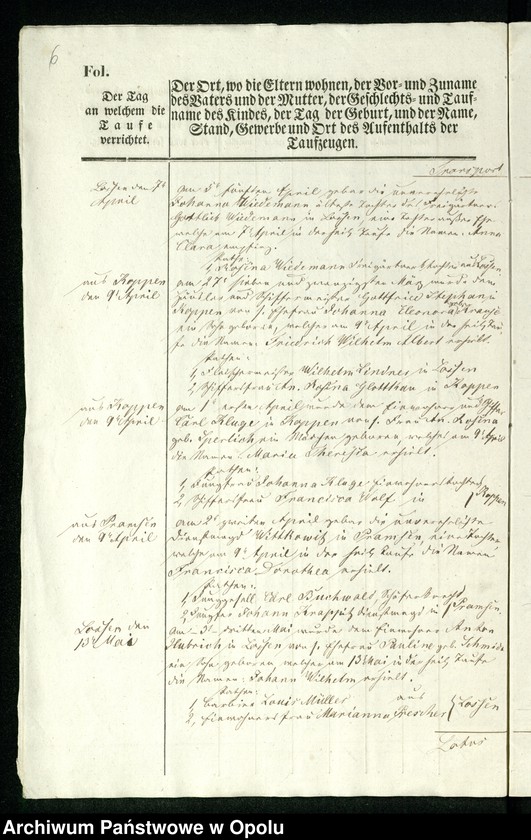 6
Fol.
Der Tag
an welchem die
Taufe
verrichtet.
Der Ort, wo die Eltern wohnen, der Vor- und Zuname
des Vaters und der Mutter, der Geschlechts- und Tauf-
name des Kindes, der Tag der Geburt, und der Name,
Stand, Gewerbe und Ort des Aufenthalts der
Taufzeugen.
Transport
Lossen den 7t
April
am 5t fünften April gebar die unverehelichte
Johanna Wiedemann älteste Tochter des
Gottlieb Wiedemann in Lossen, eine Tochter
welche am 7 April in der heil. Taufe die Namen: Anna
Clara empfing.
Pathe:
1, Rosina Wiedemann
aus Koppen
den 9t April
am 27t sieben und zwanzigsten März wurde dem
und Schiffermeister Gottfried Stephan in
Koppen von s. Ehefrau Johanna Eleonora geb. Krause
ein Sohn geboren, welcher am 9t April in der heil. Tau-
fe die Namen: Friedrich Wilhelm Albert erhielt.
Pathen:
1, Fleischermeister Wilhelm Lindner in Lossen
2, Schifferfrau An. Rosina Glotthau in Koppen
aus Koppen
den 9t April
am 1t ersten April wurde dem Einwohner und Schiffer
Carl Kluge in Koppen von s. Frau An. Rosina
geb. Sperlich ein Mädchen geboren, welches am 9t April
die Namen: Maria Theresia erhielt.
Pathen:
1, Jungfrau Johanna Kluge Einwohnertochter
2, Schifferfrau Francisca Wolf in } Koppen
aus Pramsen
den 9t April
am 2t zweiten April gebar die unverehelichte
Dienstmagd Wittkowitz in Pramsen eine Tochter
welche am 9t April in der heil. Taufe die Namen
Francisca Dorothea erhielt.
Pathen:
1, Junggesell Carl Buchwald, Schäferknecht
2, Jungfer Johanna Dienstmagd in } Pramsen
Lossen den
13t Mai
Am 3t dritten Mai wurde dem Einwohner Anton
Hubrich in Lossen von s. Ehefrau Pauline geb. Schmidt
ein Sohn geboren, welcher am 13t Mai in der heil. Taufe
die Namen: Johann Wilhelm erhielt.
Pathen:
1, Barbier Louis Müller aus
2, Einwohners Frau Marianna Fescher } Lossen
Latus
Archiwum Państwowe w Opolu